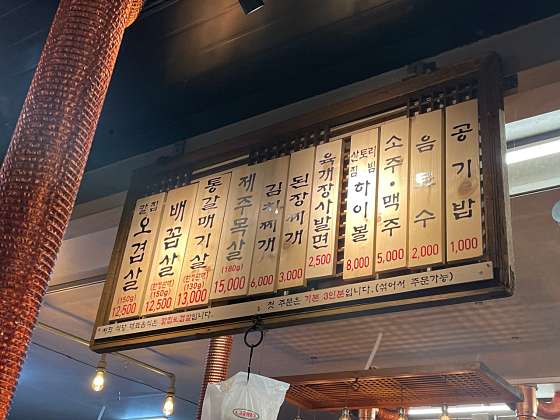 칼집
오겹살
(150g)
12,500
배꼽살
(한정판매)
(150g)
12,500
통갈매기살
(한정판매)
(130g)
13,000
제주목살
(180g)
15,000
김치찌개
6,000
된장찌개
3,000
육개장사발면
2,500
산토리
짐빔
하이볼
8,000
소주·맥주
5,000
음료수
2,000
공기밥
1,000
* 첫 주문은 기본 3인분입니다.(섞어서 주문가능)
* 저희 식당 대표음식은 칼집오겹살입니다.